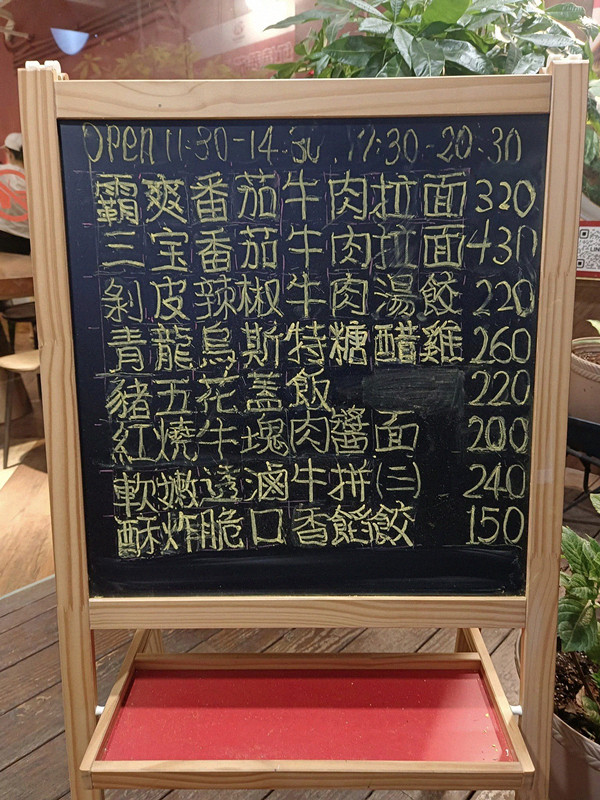 OPEN 11:30-14:30 17:30-20:30
霸爽番茄牛肉拉面320
三宝番茄牛肉拉面430
剁皮辣椒牛肉湯餃220
青龍烏斯特糖醋雞260
豬五花蓋飯220
紅燒牛塊肉醬面200
軟嫩透滷牛拼(二)240
酥炸脆口香餡餃150
LINE